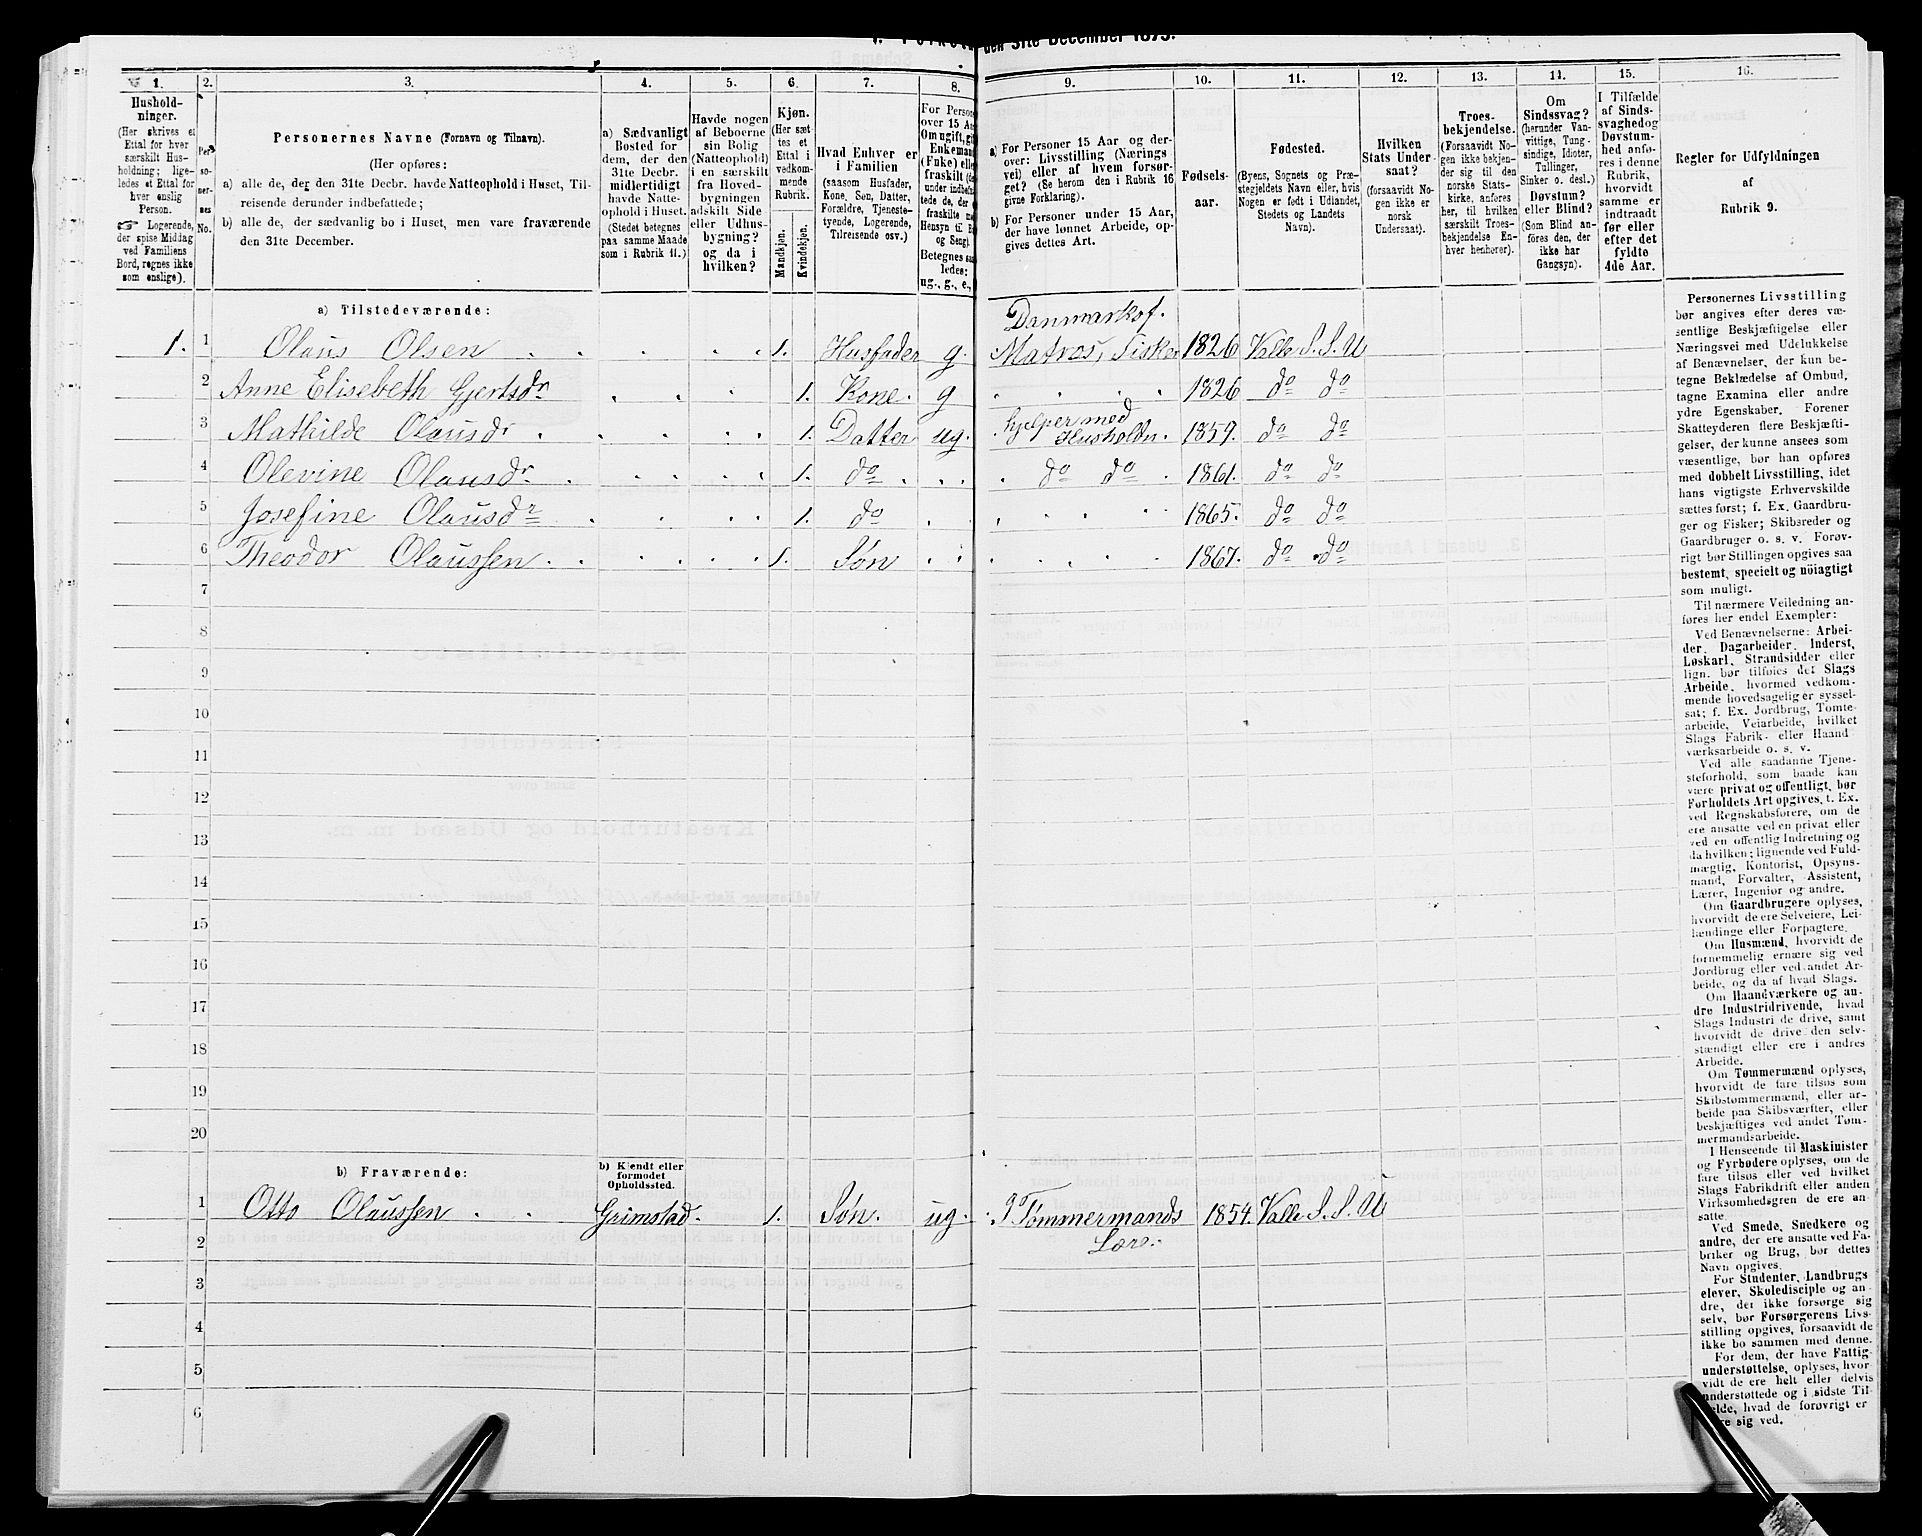 1. Folket den 31te December 1875.
1.
Hushold-
ninger.
(Her skrives et
Ettal for hver
særskilt Hus-
holdning; lige-
ledes et Ettal for
hver enslig
Person.
☞ Logerende,
der spise Middag
ved Familiens
Bord, regnes ikke
som enslige).
2.
Per-
so-
ner-
nes
No.
3.
Personernes Navne (Fornavn og Tilnavn).
(Her opføres:
a) alle de, der den 31te Decbr. havde Natteophold i Huset, Til-
reisende derunder indbefattede;
b) alle de, der sædvanlig bo i Huset, men vare fraværende
den 31te December.
4.
a) Sædvanligt
Bosted for
dem, der den
31te Decbr.
midlertidigt
havde Natte-
ophold i Huset.
(Stedet betegnes
paa samme Maade
som i Rubrik 11.)
5.
Havde nogen
af Beboerne
sin Bolig
(Natteophold)
i en særskilt
fra Hoved-
bygningen
adskilt Side
eller Udhus-
bygning?
og da i
hvilken?
6.
Kjøn.
(Her sæt
tes et
Ettal i
vedkom-
mende
Rubrik.
Mandkjøn.
Kvindekjøn.
7.
Hvad Enhver er
i Familien
(saasom Husfader,
Kone, Søn, Datter,
Forældre, Tjeneste-
tyende, Logerende,
Tilreisende osv.)
8.
For Person
over 15 Aar
Om ugift, gift
Enkemand
(Enke) eller
fraskilt
ug., g., e.,
9.
a) For Personer 15 Aar og der-
over: Livsstilling (Nærings
vei) eller af hvem forsør-
get? (Se herom den i Rubrik 16
givne Forklaring).
b) For Personer under 15 Aar,
der have lønnet Arbeide, op-
gives dettes Art.
10.
Fødsels-
aar.
11.
Fødested.
(Byens, Sognets og Præ-
stegjeldets Navn eller, hvis
Nogen er født i Udlandet,
Stedets og Landets
Navn).
12.
Hvilken
Stats Under-
saat?
(forsaavidt No-
gen ikke er
norsk
Undersaat).
13.
Troes-
bekjendelse.
(Forsaavidt No-
gen ikke bekjen-
der sig til den
norske Stats-
kirke, anføres
her, til hvilken
særskilt Troes-
bekjendelse En-
hver henhører).
14.
Om
Sindssvag?
(herunder Van-
vittige, Tung-
sindige, Idioter,
Tullinger,
Sinker o. desl.)
Døvstum?
eller Blind?
(Som Blind an-
føres den, der
ikke har
Gangsyn).
15.
I Tilfælde
af Sinds-
svaghed og
Døvstum-
hed anfø-
res i denne
Rubrik,
hvorvidt
samme er
indtraadt
før eller
efter det
fyldte
4de Aar.
16.
Regler for Udfyldningen
af
Rubrik 9.
a) Tilstedeværende:
Danmarksf.
1. 1 Olaus Olsen 1. Husfader g. Matros, Fisker 1826 Valle S. S. U
2 Anne Elisebeth Gjertsdr 1. Kone. g 1826 do do
3 Mathilde Olausdr 1. Datter ug. hjelper med Husholdn. 1859. do do
4 Olevine Olausdr 1. do do do 1861. do do
5 Josefine Olausdr 1. do 1865. do do
6 Theodor Olaussen 1. Søn 1867. do do
7
8
9
10
11
12
13
14
15
16
17
18
19
20
b) Fraværende:
b) Kjendt eller
formodet
Opholdssted.
1 Otto Olaussen Grimstad. 1. Søn. ug. I Tømmermands 1854. Valle S. S. U
2 Lære.
3
4
5
6
Personernes Livsstilling
bør angives efter deres væ-
sentlige Beskjæftigelse eller
Næringsvei med Udelukkelse
af Benævnelser, der kun be-
tegne Beklædelse af Ombud,
tagne Examina eller andre
ydre Egenskaber. Forener
Skatteyderen flere Beskjæfti-
gelser, der kunne ansees som
væsentlige, bør han opføres
med dobbelt Livsstilling, idet
hans vigtigste Erhvervskilde
sættes først; f. Ex. Gaardbru-
ger og Fisker; Skibsreder og
Gaardbruger o. s. v. Forøv-
rigt bør Stillingen opgives saa
bestemt, specielt og nøiagtigt
som muligt.
Til nærmere Veiledning an-
føres her endel Exempler:
Ved Benævnelserne: Arbei-
der, Dagarbeider, Inderst,
Løskarl, Strandsidder eller
lign. bør tilføies det Slags
Arbeide, hvormed vedkom-
mende hovedsagelig er syssel-
sat; f. Ex. Jordbrug, Tomte-
arbeide, Veiarbeide, hvilket
Slags Fabrik- eller Haand
værksarbeide o. s. v.
Ved alle saadanne Tjene-
steforhold, som baade kan
være privat og offentligt, bør
Forholdets Art opgives, t. Ex.
ved Regnskabsførere, om de
ere ansatte ved en privat eller
ved en offentlig Indretning og
da hvilken; lignende ved Fuld-
mægtig, Kontorist, Opsyns-
mand, Forvalter, Assistent,
Lærer, Ingeniør og andre.
Om Gaardbrugere oplyses,
hvorvidt de ere Selveiere, Lei-
lændinge eller Forpagtere.
Om Husmænd, hvorvidt de
fornemmelig ernære sig ved
Jordbrug eller ved andet Ar-
beide, og da af hvad Slags.
Om Haandværkere og an-
dre Industridrivende, hvad
Slags Industri de drive, samt
hvorvidt de drive den selv-
stændigt eller ere i andres
Arbeide.
Om Tømmermænd oplyses,
hvorvidt de fare tilsøs som
Skibstømmermænd, eller ar-
beide paa Skibsværfter, eller
beskjæftiges ved andet Tøm-
mermandsarbeide.
I Henseende til Maskinister
og Fyrbødere oplyses, om de
fare tilsøs eller ved hvilket
Slags Fabrikdrift eller anden
Virksomhedsgren de ere an-
satte.
Ved Smede, Snedkere og
andre, der ere ansatte ved Fa-
briker og Brug, bør dettes
Navn opgives.
For Studenter, Landbrugs
elever, Skoledisciple og an-
dre, der ikke forsørge sig
selv, bør Forsørgerens Livs-
stilling opgives, forsaavidt de
ikke bo sammen med denne.
For dem, der have Fattig-
understøttelse, oplyses, hvor-
vidt de ere helt eller delvis
understøttede og i sidste Til-
fælde, hvad de forøvrigt er
nære sig ved.